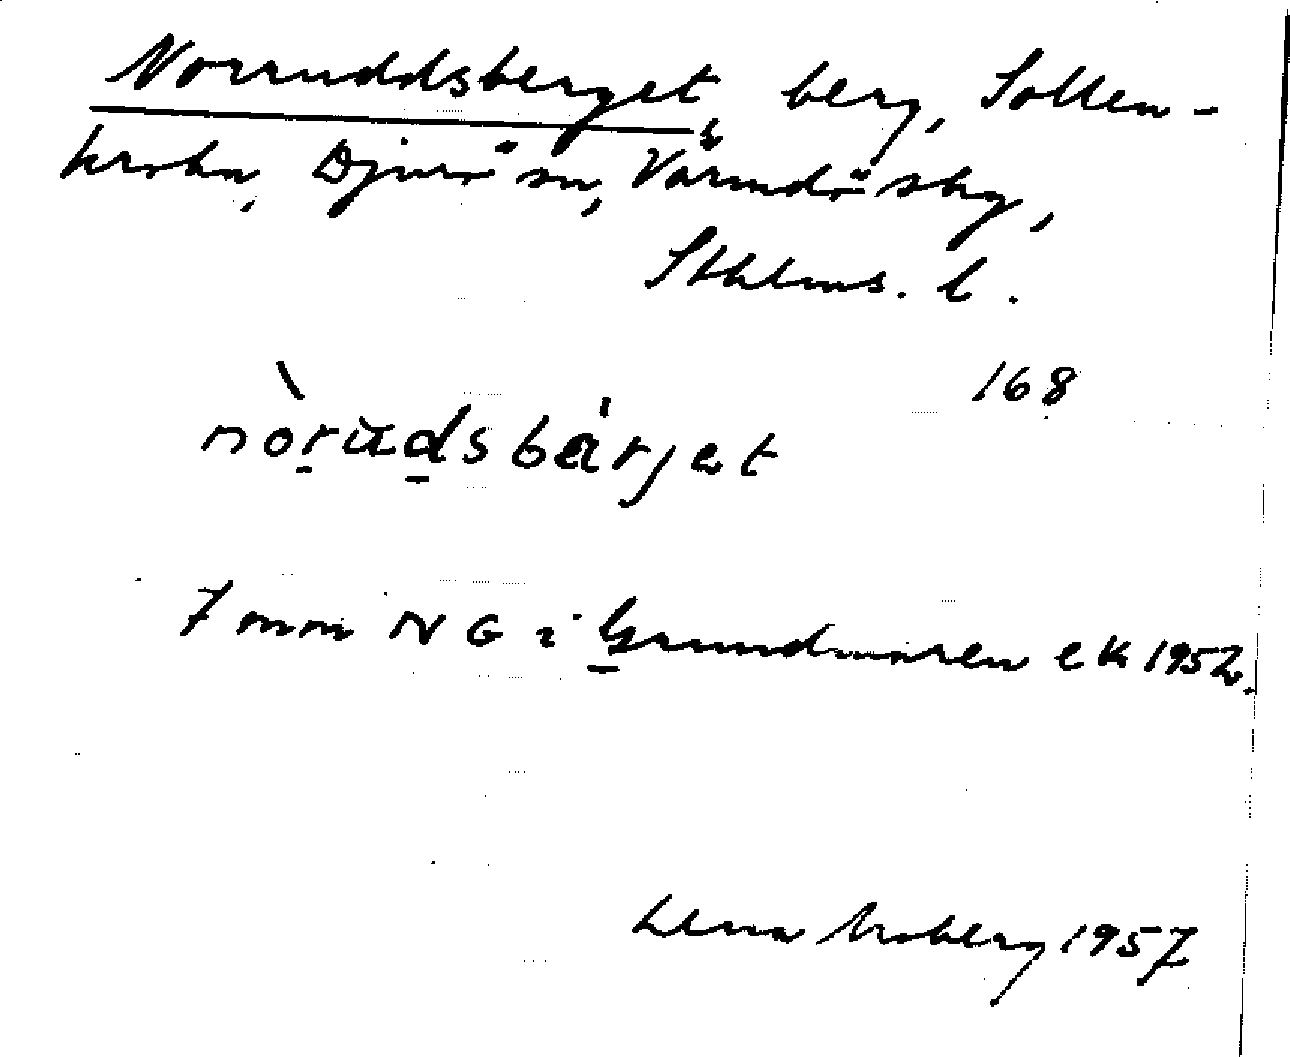 Norruddsberget, berg, Sollen-
kroka, Djurö sn, Värmdö skg,
Sthlms. l.
168
nòrudsbärjet
7 mm N G i Grundmaren ek 1957.
Lena Moberg 1957